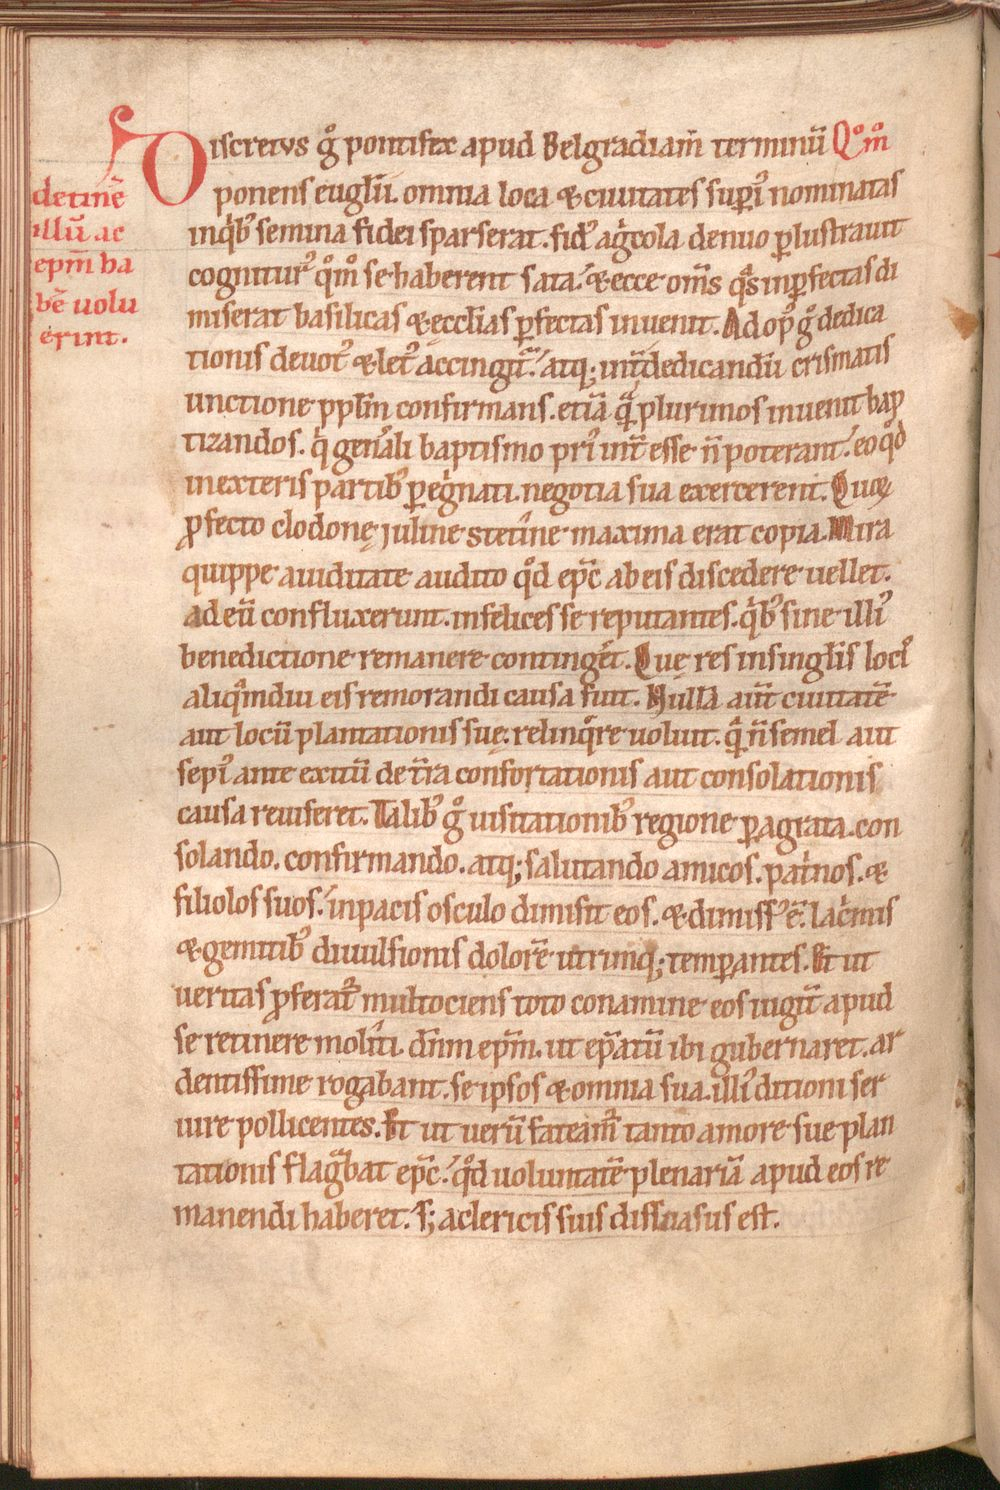 Discretus g̊ pontifex apud Belgradiam̄ terminū Qͦmͦ
detinē
illū ac
epm̄ ha
bē uolu
erint.
ponens eugl̄ii. omnia loca & ciuitates sup̲i᾽ nominatas
inqͥb᾽ semina fidei sparserat. fid᾽ agͥcola denuo p̲lustrauit
cognitur᾽ qͦmͦ se haberent sata. & ecce om̄s qͣs inp̲fectas di
miserat basilicas & eccl̄ias p̲fectas inuenit. Ad op᾽ g̊ dedica
tionis deuot᾽ & let᾽ accingit᷑. atq; int̄ dedicandū crismatis
unctione ppl̄m confirmans. etiā qͣ plurimos inuenit bap
tizandos. qͥ gen̄ali baptismo pri᾽ int̄esse n̄ poterant. eo qͦd
in exteris partib᾽ p̲egͥnati. negotia sua exercerent. Quę
ꝓfecto clodonę iuline stetīne maxima erat copia. Mira
quippe auiditate audito qͦd ep̄c ab eis discedere uellet.
ad eū confluxerunt. infelices se reputantes. qͥb᾽ sine illi᾽
benedictione remanere conting̾et. Quę res in singl̄is loci᾽
aliqͣmdiu eis remorandi causa fuit. Nullā aut̄ ciuitatē
aut locū plantationis suę. relinqͥre uoluit. qͣ n̄ semel aut
sepi᾽ ante exitū de t̄ra confortationis aut consolationis
causa reuiseret. Talib᾽ g̊ uisitationib᾽ regione p̲agrata. con
solando. confirmando. atq; salutando amicos. patͥnos. &
filiolos suos. in pacis osculo dimisit eos. & dimiss᾽ ē. lacͥmis
& gemitib᾽ diuulsionis dolorē utrinq; temp̲antes. Et ut
ueritas ꝓferat᷑ multociens toto conamine eos iugit̄ apud
se retinere molīti. dn̄m ep̄m. ut ep̄atū ibi gubernaret. ar
dentissime rogabant. se ipsos & omnia sua. illi᾽ ditioni ser
uire pollicentes. Et ut uerū fateam᷑ tanto amore sue plan
tationis flagͣbat ep̄c. qͦd uoluntatē plenariā apud eos re
manendi haberet. S; a clericis suis dissuasus est.